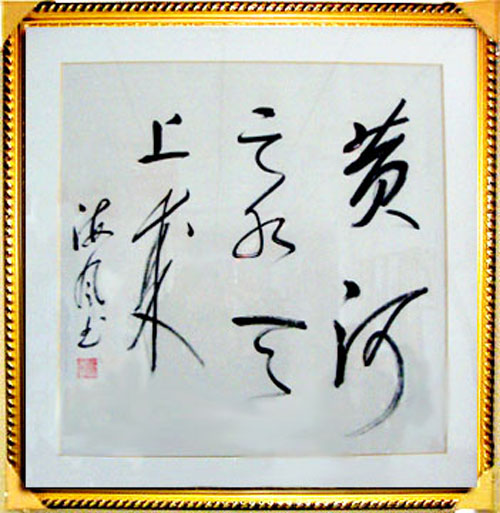 黄河
之水天
上来
海风书